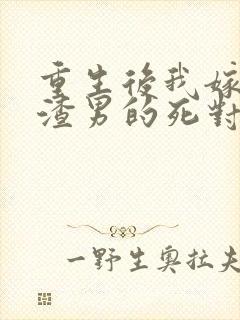 重生後我嫁
渣男的死對
一野生奧拉夫